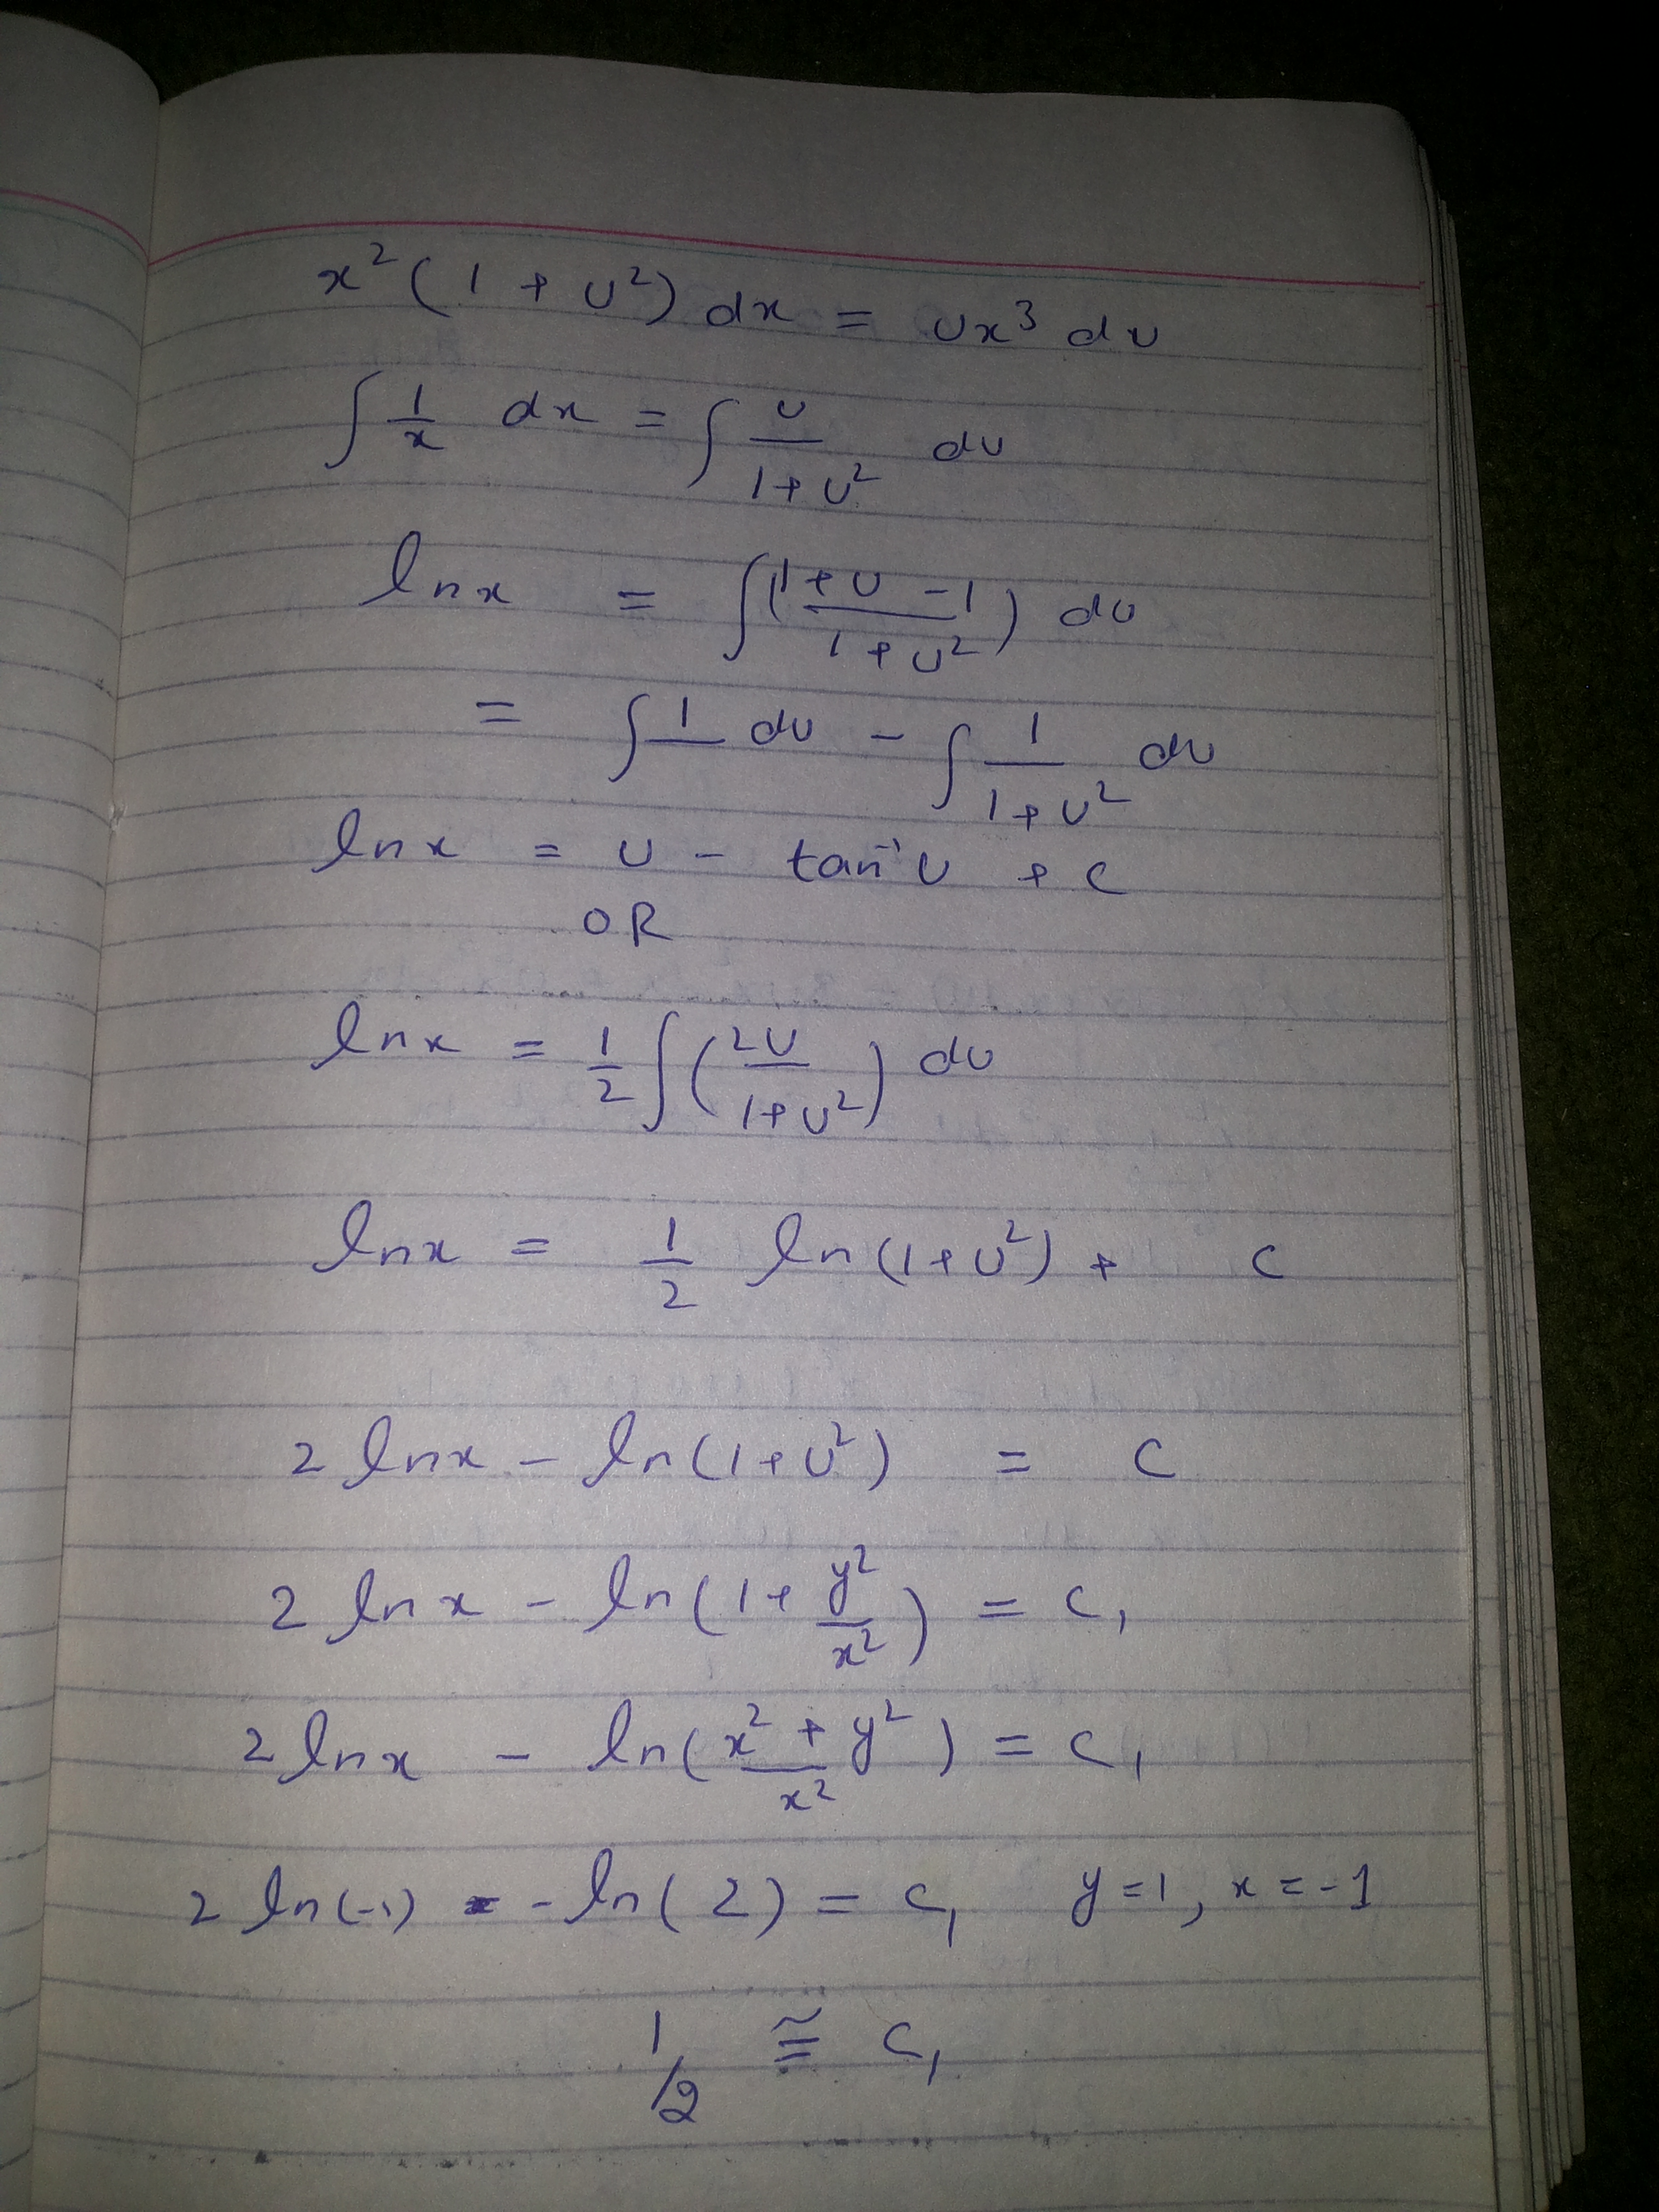 x² (1 + u²) dx = ux³ du
∫ 1/x dx = ∫ u/(1+u²) du
ln x = ∫ ((1+u-1)/(1+u²)) du
= ∫ 1 du - ∫ 1/(1+u²) du
ln x = u - tan⁻¹ u + c
OR
ln x = 1/2 ∫ (2u/(1+u²)) du
ln x = 1/2 ln(1+u²) + c
2 ln x - ln(1+u²) = c
2 ln x - ln(1+ y²/x²) = c₁
2 ln x - ln((x² + y²)/x²) = c₁
2 ln(-1) - ln(2) = c₁ y=1, x=-1
1/2 ≅ c₁